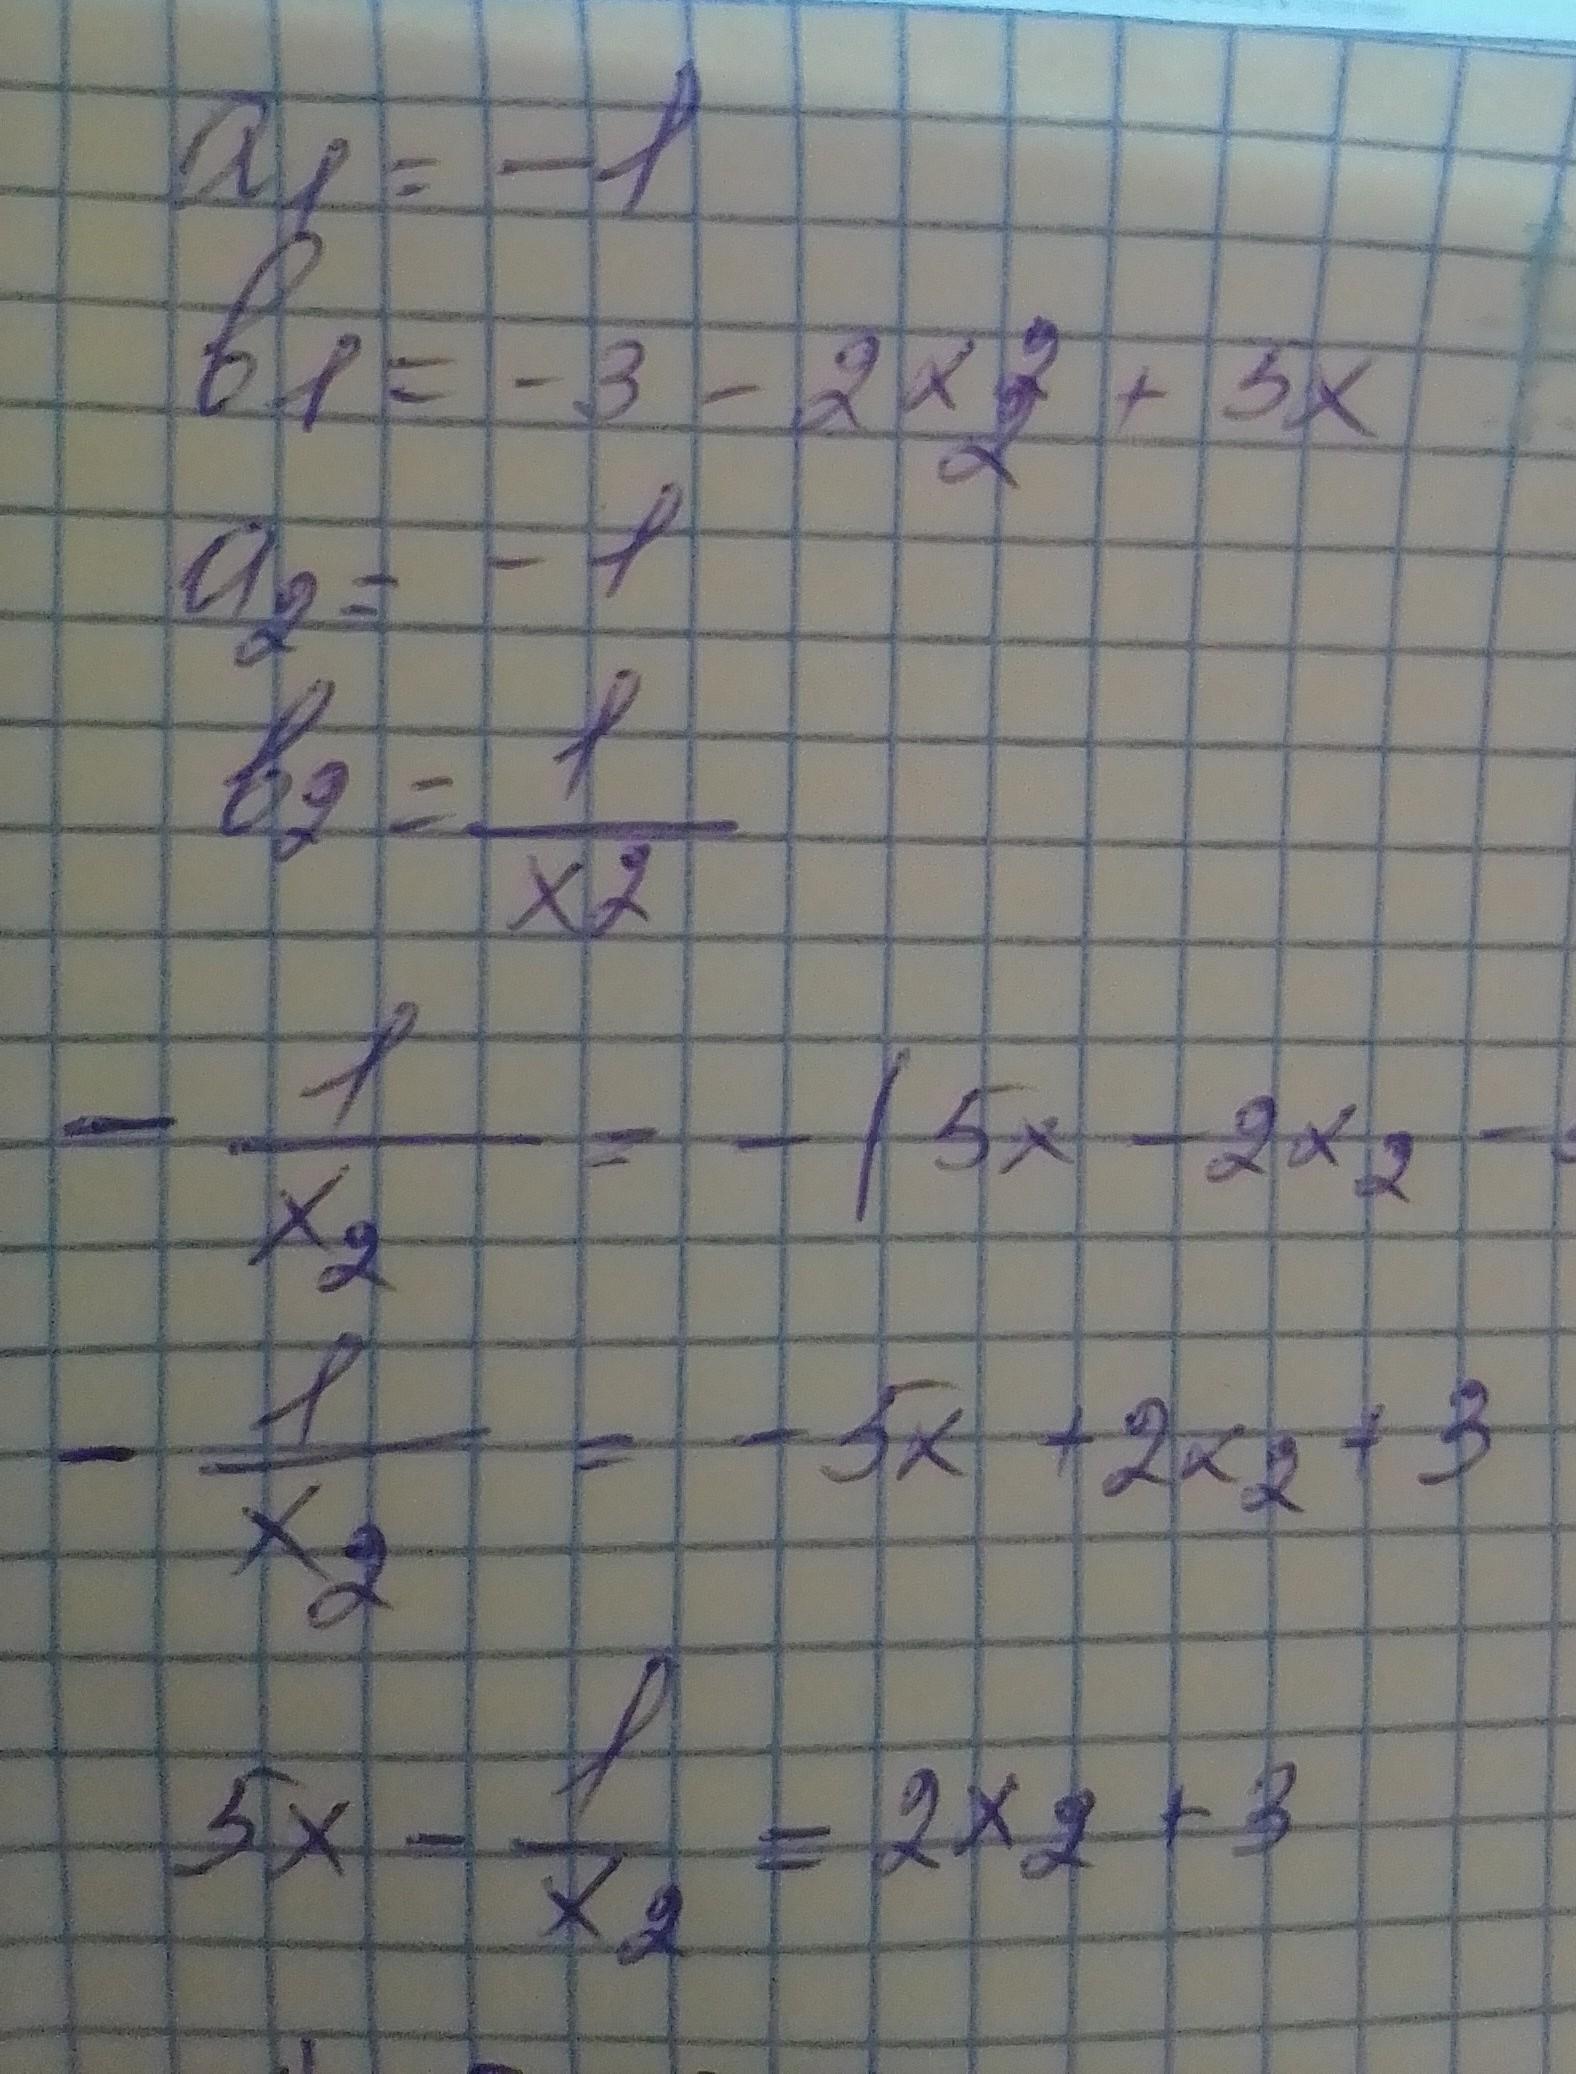 a₁ = -1
b₁ = -3 - 2x₂² + 5x
a₂ = -1
b₂ = 1/x2
- 1/x₂ = -(5x - 2x₂ -
- 1/x₂ = -5x + 2x₂ + 3
5x - 1/x₂ = 2x₂ + 3